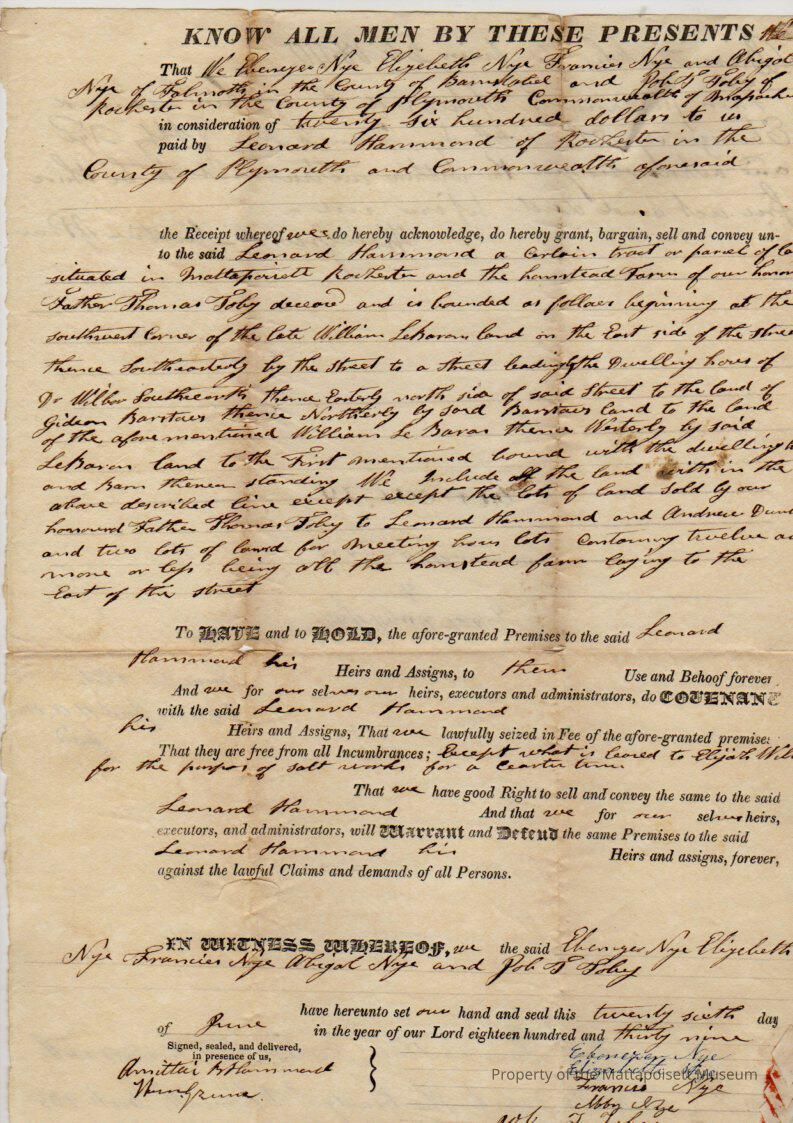 KNOW ALL MEN BY THESE PRESENTS
That We Ebenezer Nye Elizebeth Nye Francies Nye and Abigal
Nye of Falmoth in the County of Barnstabel and Job T Toby of
Rochester in the County of Plymouth Commonwealth of
in consideration of twenty six hundred dollars to us
paid by Leonard Hammond of Rochester in the
County of Plymouth and Commonwealth aforesaid
the Receipt whereof wee do hereby acknowledge, do hereby grant, bargain, sell and convey un-
to the said Leonard Hammond a Certain tract or parcel of
situated in Mattapoisett Rochester and the homstead Farm of our
Father Thomas Toby deceasd and is bounded as follows beginning at the
southwest Corner of the late William LeBaron land on the East side of the
thence Southeasterly by the Street to a Street leading the Dwelling hous of
Dr Wilbor Southworth thence Easterly north side of said Street to the land of
Gideon Barstow thence Northerly by said Barstows land to the land
of the afore mentioned William Le Baron thence Westerly by said
LeBaron land to the First mentioned bound with the dwelling
and barn thereon standing We Include all the land with in the
above described line except except the lots of land sold by our
honoured Father Thomas Toby to Leonard Hammond and Andrew
and two lots of land for meeting hous lots Containing twelve
more or less being all the homstead farm laying to the
East of the street
To HAVE and to HOLD, the afore-granted Premises to the said Leonard
Hammond his Heirs and Assigns, to them Use and Behoof forever
And we for our selves our heirs, executors and administrators, do COVENANT
with the said Leonard Hammond
his Heirs and Assigns, That we lawfully seized in Fee of the afore-granted premises
That they are free from all Incumbrances; Except what is leased to Elijah
for the purpos of salt works for a Certin time
That we have good Right to sell and convey the same to the said
Leonard Hammond And that we for our selves heirs,
executors, and administrators, will Warrant and Defend the same Premises to the said
Leonard Hammond his Heirs and assigns, forever,
against the lawful Claims and demands of all Persons.
IN WITNESS WHEREOF, we the said Ebenezer Nye Elizebeth
Nye Francies Nye Abigal Nye and Job T Toby
have hereunto set our hand and seal this twenty sixth day
of June in the year of our Lord eighteen hundred and thirty nine
Signed, sealed, and delivered,
in presence of us,
Amittai B Hammond
Ebenezer Nye
Elizabeth Nye
Francis Nye
Abby Nye
Property of the Mattapoisett Museum